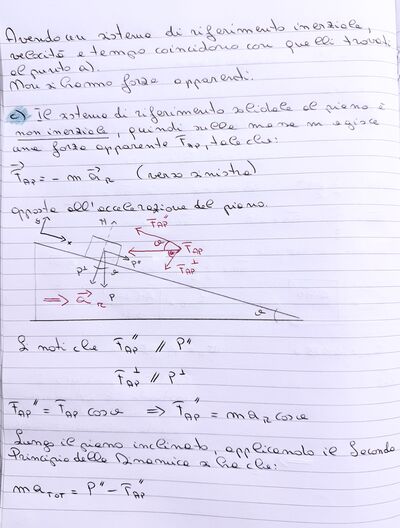 Avendo un sistema di riferimento inerziale,
velocità e tempo coincidono con quelli trovati
al punto a).
Non si hanno forze apparenti.
c) Il sistema di riferimento solidale al piano è
non inerziale, quindi sulla massa m agisce
una forza apparente F_AP, tale che:
F⃗_AP = - m a⃗_R (verso sinistra)
opposta all'accelerazione del piano.
y x N F_AP'' θ F_AP F_AP^⊥
P^⊥ θ P'' P
⇒ a⃗_R θ
Si noti che F_AP^'' // P''
F_AP^⊥ // P^⊥
F_AP^'' = F_AP cosθ ⇒ F_AP^'' = m a_R cosθ
Lungo il piano inclinato, applicando il Secondo
Principio della Dinamica si ha che:
m a_TOT = P'' - F_AP^''